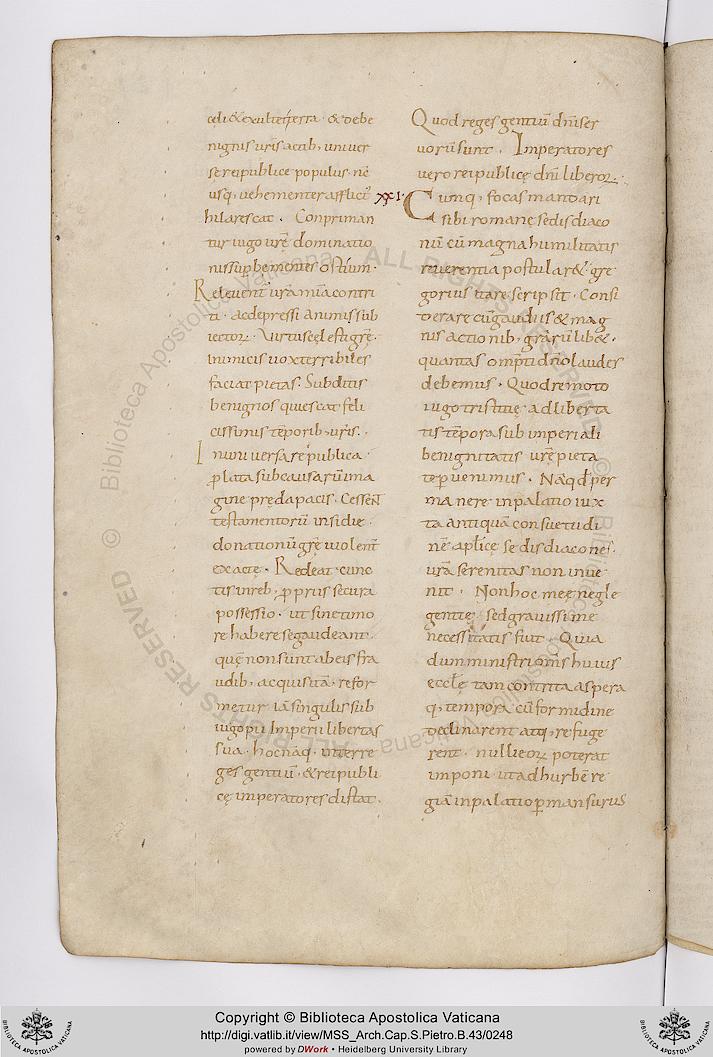 cęli & exultet terra · & de be
nignis uris̄ actib; uniuer
se rei publice populus · nc̄
usq; uehementer afflict᷒
hilarescat · Conpriman
tur iugo urę̄ dominatio
nis sup̱be mentes ostium̄ ·
Releuent᷒ urā mia̅ contri
ti · ac depressi animi sub
iector̨ · Virtus cęlestis grę̄ ·
inimicis uox terribiles
faciat pietas · Subditis
benignos quiescat feli
cissimis te̅porib; uris̄ ·
In uniuersa re publica ·
p̱lata sub causaru̅ ima
gine pręda pacis · Cessen̄
testamentoru̅ insidie ·
donationu̅ grę̄ uiolent᷒
exactę · Redeat cunc
tis in reb; p̱priis secura
possessio · ut sine timo
re habere se gaudeant ·
quę̄ non sunt ab eis fra
udib; acquisita̅ · refor
metur ia̅ singulis sub
iugo pii Imperii libertas
sua · hoc naq̄; inter re
ges gentiu̅ · & rei publi
cę imperatores distat ·
Quod reges gentiu̅ dn̄i ser
uoru̅ sunt · Imperatores
uero rei publicę dn̄i liberor̨ ·
XXI · Cumq; focas mandari
sibi romanę sedis diaco
nu̅ cu̅ magna humilitatis
reuerentia postular& · gre
gorius itare scripsit · Consi
derare cu̅ gaudiis & mag
nis actionib; gra̅ru̅ lib& ·
quantas omp̄ti dn̄o laudes
debemus · Quod remoto
iugo tristitię · ad liberta
tis te̅pora sub imperiali
benignitatis urę̄ pieta
te p̱uenimus · Na̅ qd̄ per
manere in palatio iux
ta antiqua̅ consuetudi
ne̅ aplicę̄ sedis diacones ·
urā serenitas non inue
nit · Non hoc meę negle
gentię · sed grauissime
necessitatis fiut · Quia
dum ministri om̄s huius
ecclę̄ tam contrita aspera
q; tempora cu̅ formidine
declinarent atq; refuge
rent · nulli eor̨ poterat
imponi · ut ad hurbe̅ re
gia̅ in palatio p̱mansurus
Copyright © Biblioteca Apostolica Vaticana
http://digi.vatlib.it/view/MSS_Arch.Cap.S.Pietro.B.43/0248
powered by DWork • Heidelberg University Library